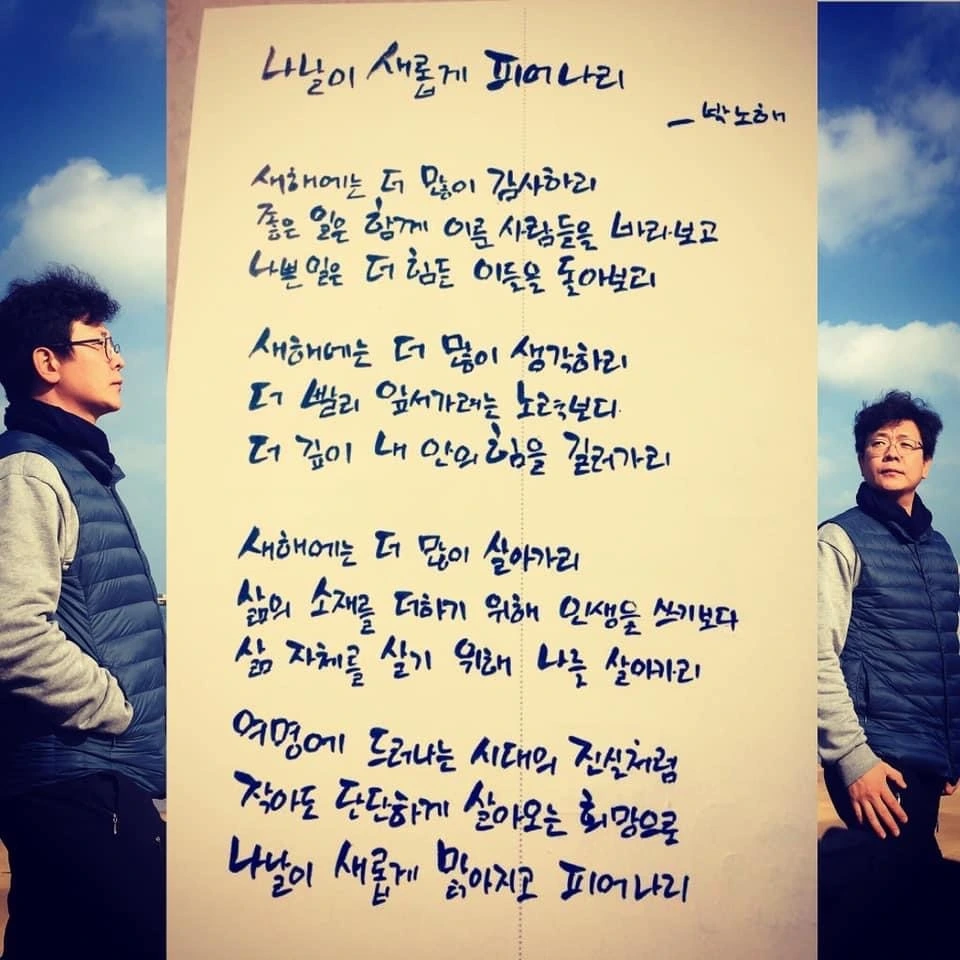 나날이 새롭게 피어나리
- 박노해
새해에는 더 많이 감사하리
좋은 일은 함께 이룬 사람들을 바라보고
나쁜 일은 더 힘든 이들을 돌아보리
새해에는 더 많이 생각하리
더 빨리 앞서가려는 노력보다
더 깊이 내 안의 힘을 길러가리
새해에는 더 많이 살아가리
삶의 소재를 더하기 위해 인생을 쓰기보다
삶 자체를 살기 위해 나를 살아가리
여명에 드러나는 시대의 진실처럼
작아도 단단하게 살아오는 희망으로
나날이 새롭게 맑아지고 피어나리